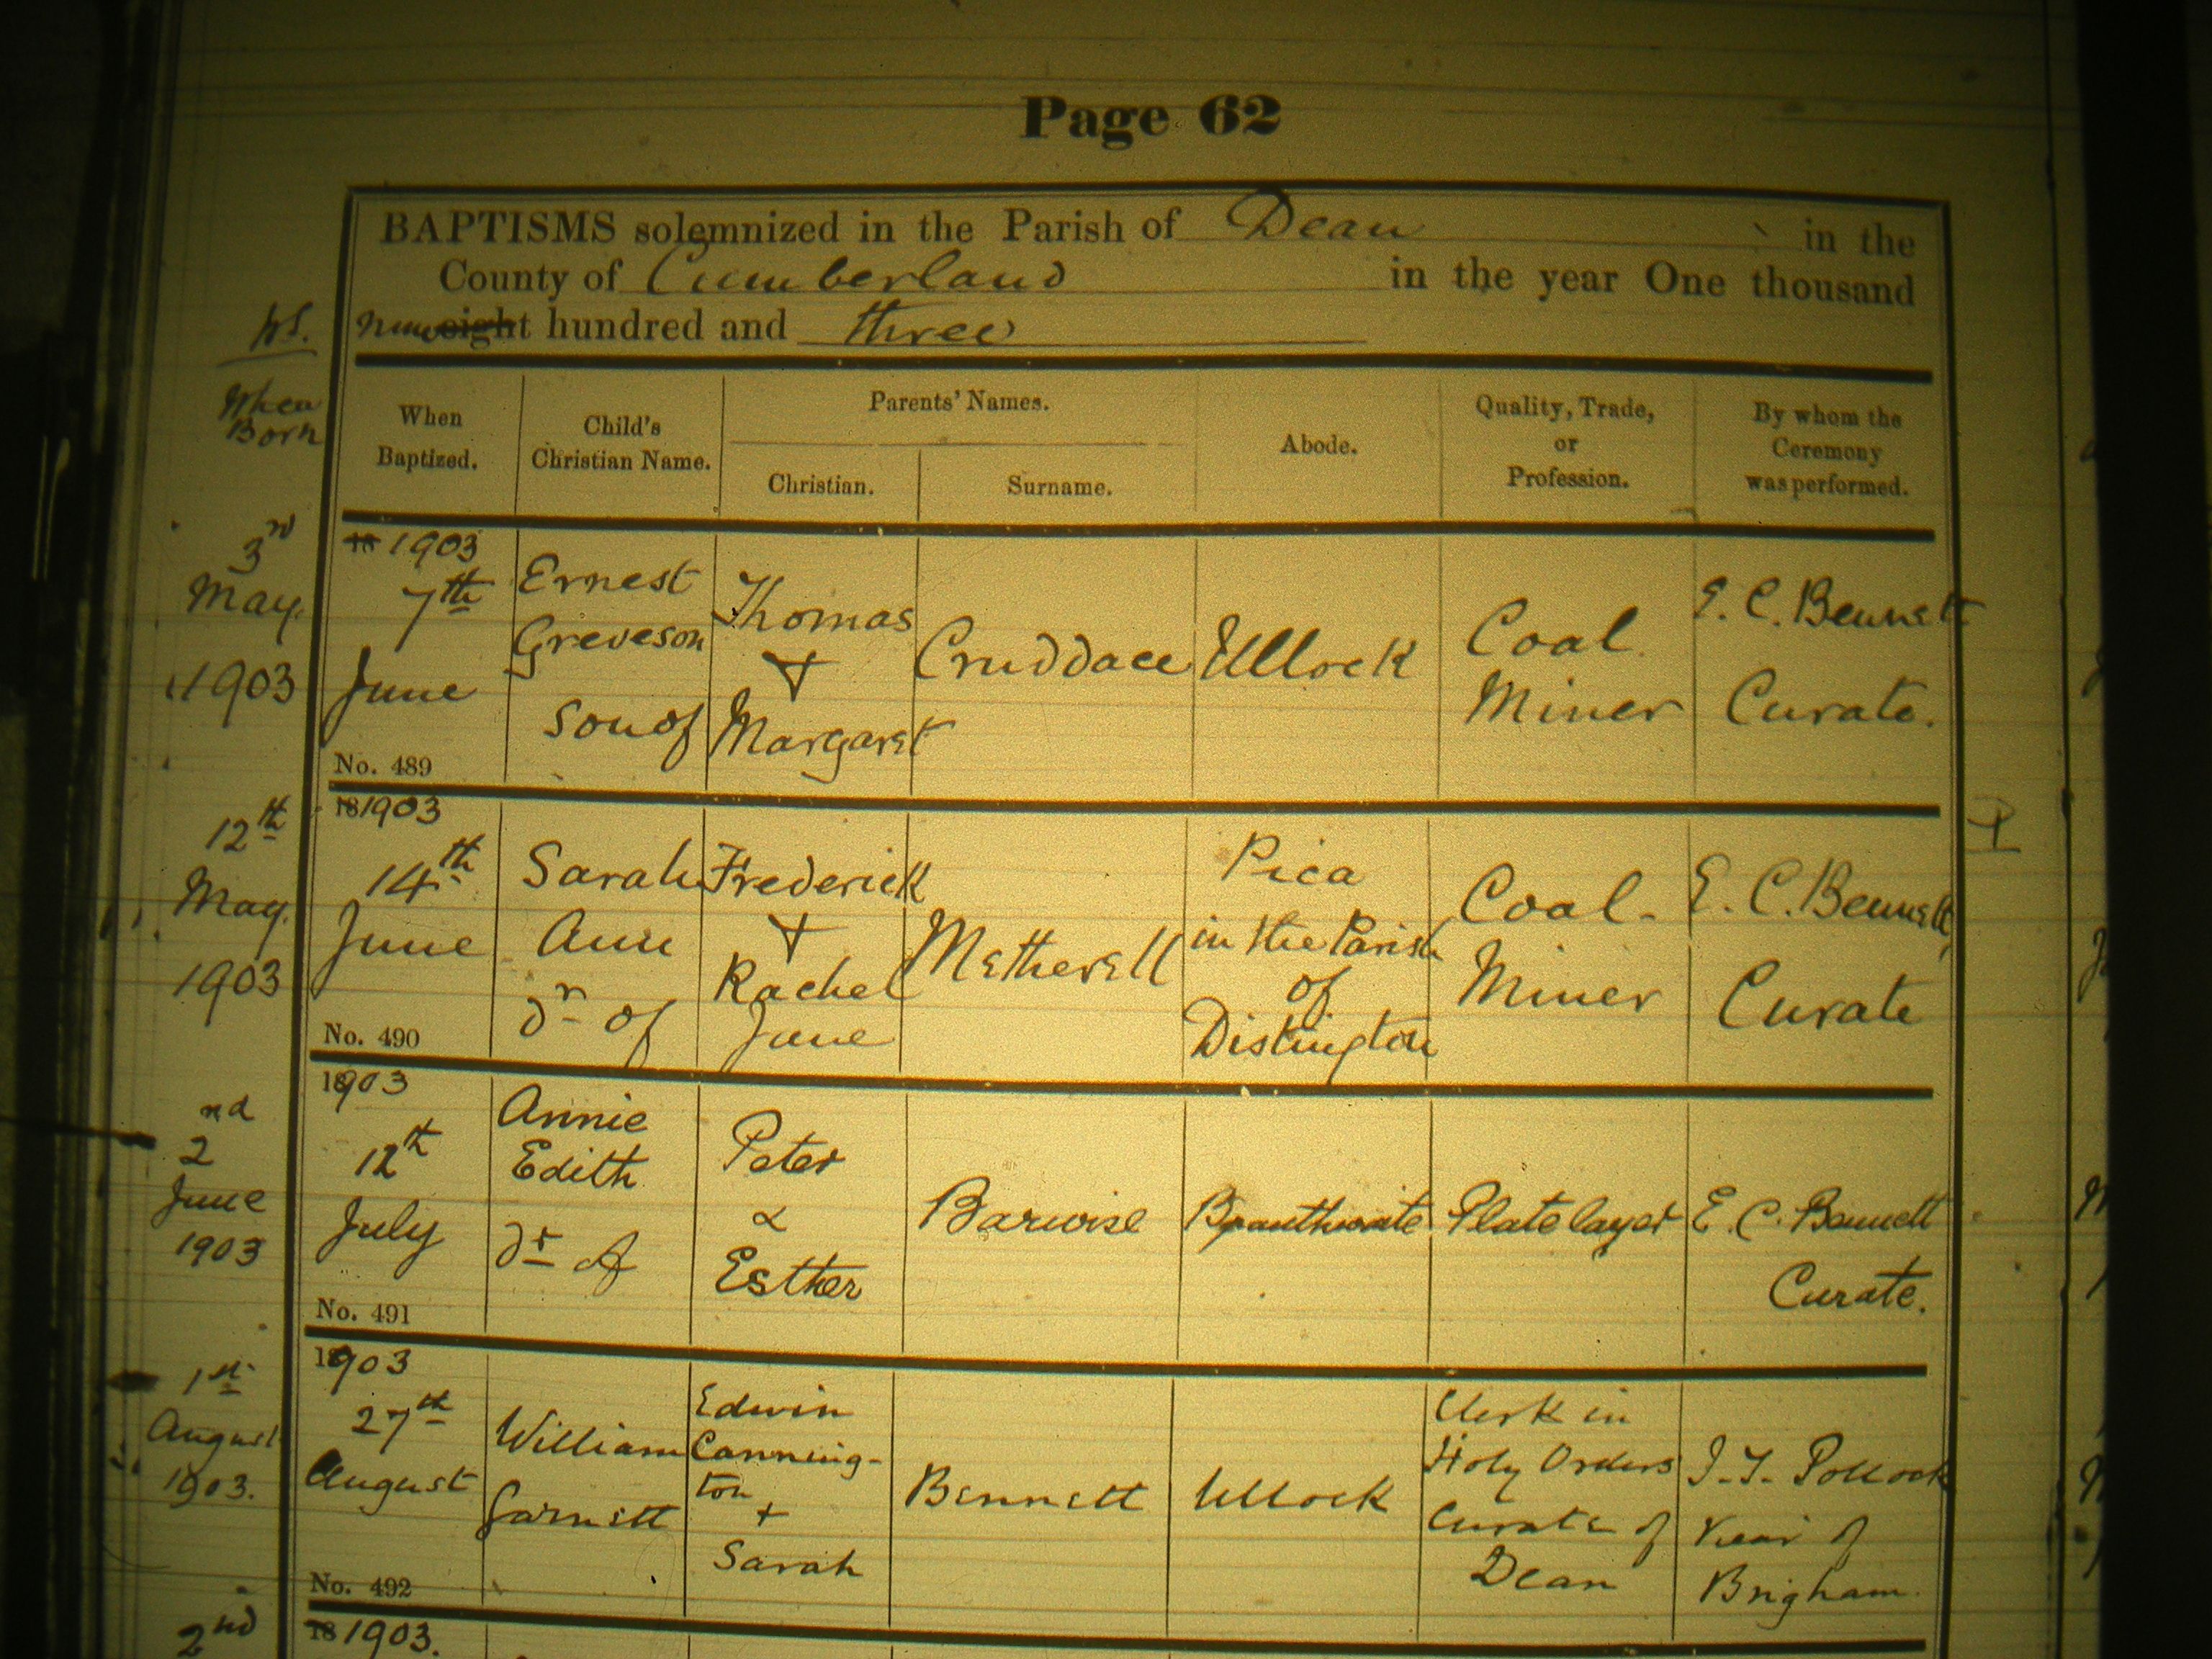 Page 62
BAPTISMS solemnized in the Parish of Dean in the
County of Cumberland in the year One thousand
nine eight hundred and three
When
Born
When
Baptized.
Child's
Christian Name.
Parents' Names.
Christian.
Surname.
Abode.
Quality, Trade,
or
Profession.
By whom the
Ceremony
was performed.
3rd
May.
1903
18 1903
7th
June
No. 489
Ernest
Greveson
son of
Thomas
+
Margaret
Cruddace
Ullock
Coal
Miner
E. C. Bennett
Curate.
12th
May.
1903
18 1903
14th
June
No. 490
Sarah
Ann
dr of
Frederick
+
Rachel
Jane
Metherell
Pica
in the Parish
of
Distington
Coal-
Miner
E. C. Bennett,
Curate
P
2nd
June
1903
1903
12th
July
No. 491
Annie
Edith
dr of
Peter
&
Esther
Barwise
Branthwaite
Platelayer
E. C. Bennett
Curate.
1st
August
1903.
1903
27th
August
No. 492
William
Garnett
Edwin
Canning-
ton
+
Sarah
Bennett
Ullock
Clerk in
Holy Orders
Curate of
Dean
J. F. Pollock
Vicar of
Brigham
2nd
18 1903.